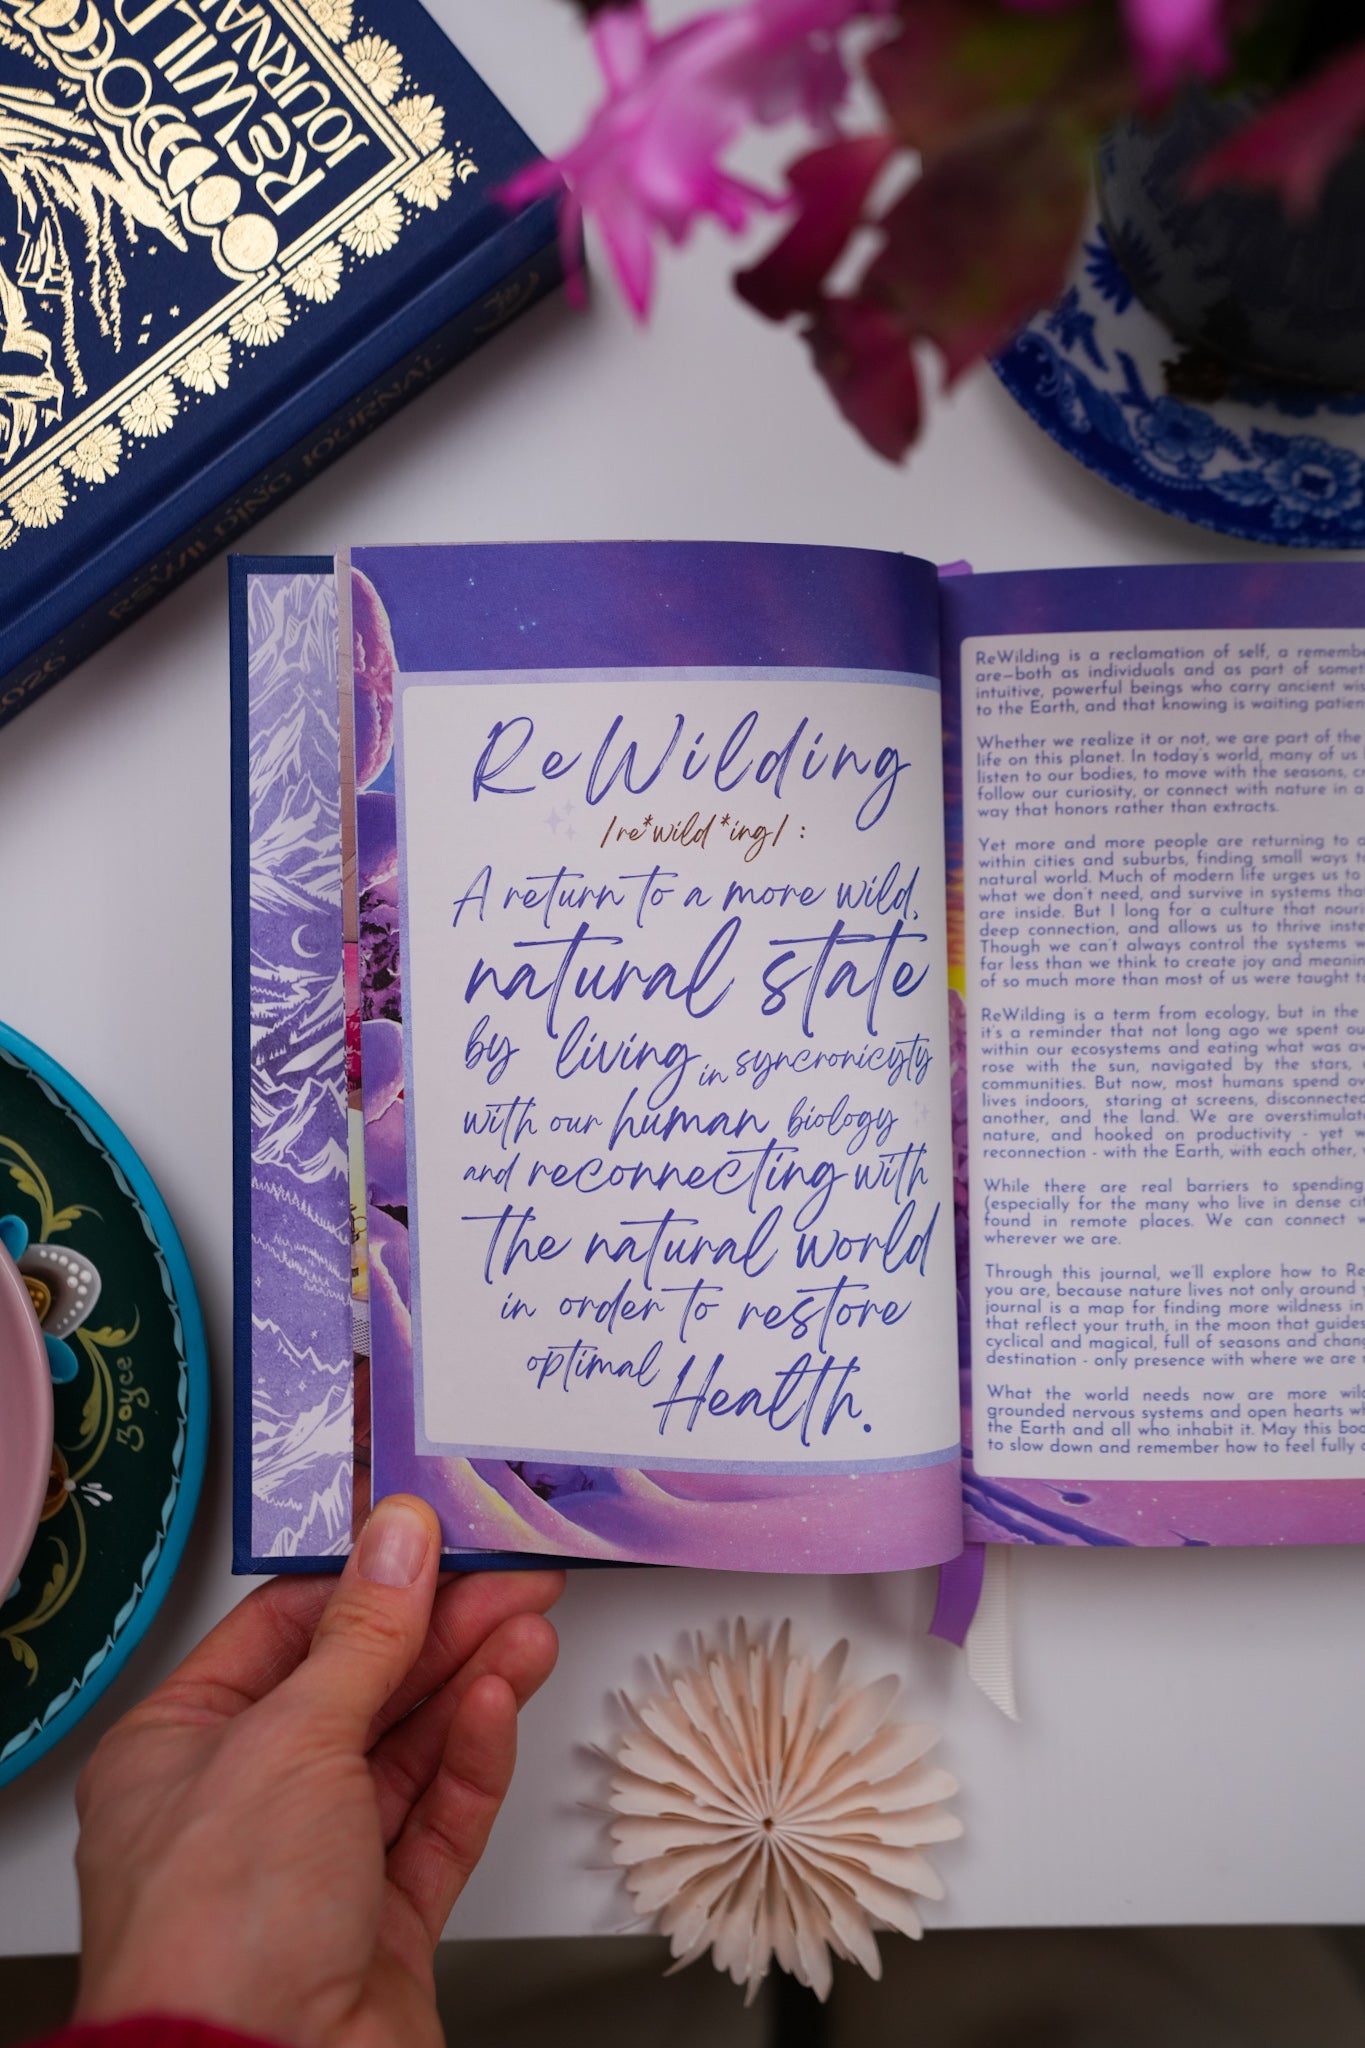 REWILD
JOURNA
REWILDING JOURNAL
2026
ReWilding
/re*wild*ing/ :
A return to a more wild,
natural state
by living in syncronicyty
with our human biology
and reconnecting with
the natural world
in order to restore
optimal Health.
ReWilding is a reclamation of self, a
are—both as individuals and as part of
intuitive, powerful beings who carry ancient
to the Earth, and that knowing is waiting
Whether we realize it or not, we are part of the
life on this planet. In today's world, many of us
listen to our bodies, to move with the seasons,
follow our curiosity, or connect with nature in a
way that honors rather than extracts.
Yet more and more people are returning to
within cities and suburbs, finding small ways
natural world. Much of modern life urges us to
what we don't need, and survive in systems
are inside. But I long for a culture that
deep connection, and allows us to thrive
Though we can't always control the systems
far less than we think to create joy and
of so much more than most of us were taught
ReWilding is a term from ecology, but in the
it's a reminder that not long ago we spent
within our ecosystems and eating what was
rose with the sun, navigated by the stars,
communities. But now, most humans spend
lives indoors, staring at screens, disconnected
another, and the land. We are
nature, and hooked on productivity - yet
reconnection - with the Earth, with each other,
While there are real barriers to spending
(especially for the many who live in dense
found in remote places. We can connect
wherever we are.
Through this journal, we'll explore how to
you are, because nature lives not only around
journal is a map for finding more wildness in
that reflect your truth, in the moon that guides
cyclical and magical, full of seasons and
destination - only presence with where we are
What the world needs now are more
grounded nervous systems and open hearts
the Earth and all who inhabit it. May this
to slow down and remember how to feel fully
Boyce